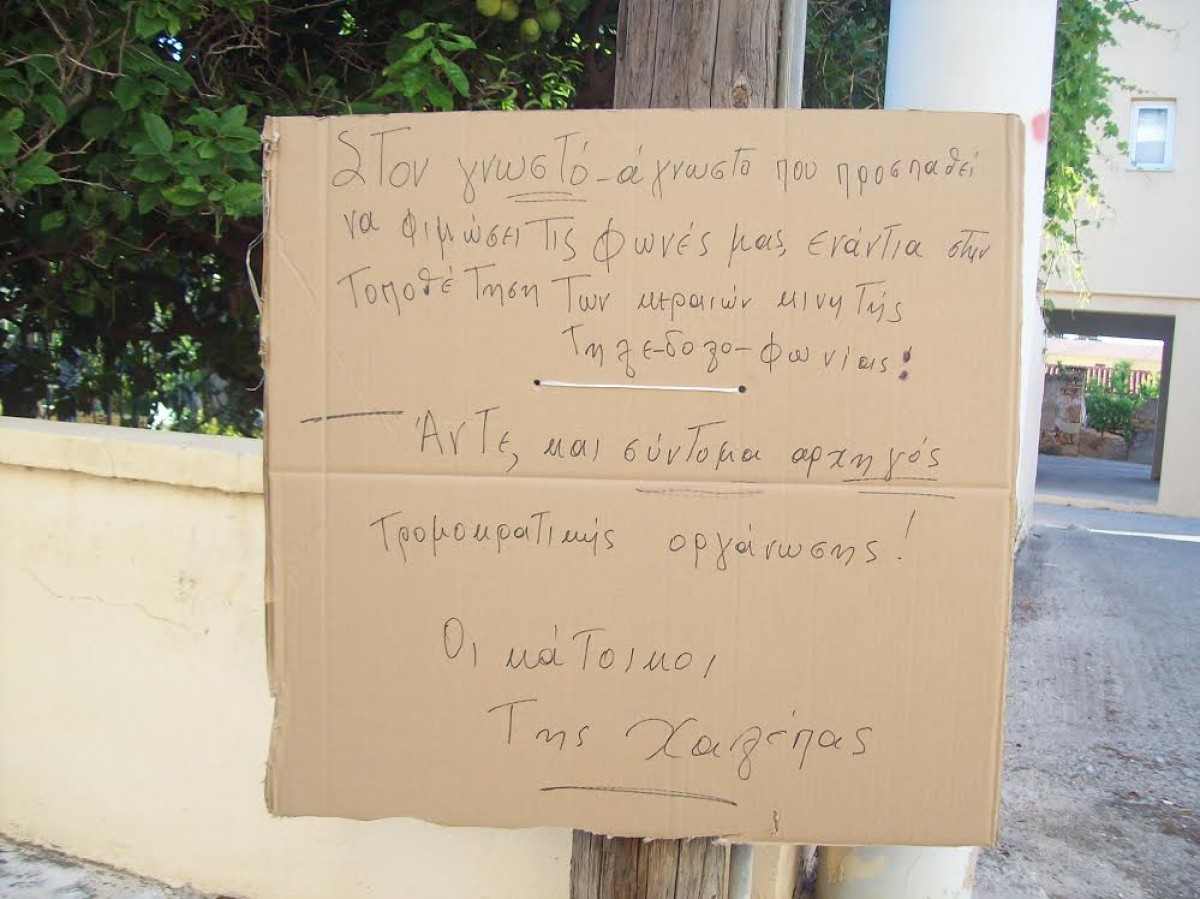 Στον γνωστό-άγνωστο που προσπαθεί
να φιμώσει τις φωνές μας, ενάντια στην
τοποθέτηση των κεραιών κινητής
τηλε-δολο-φωνίας!
Άντε, και σύντομα αρχηγός
τρομοκρατικής οργάνωσης!
Οι κάτοικοι
της Χαλέπας